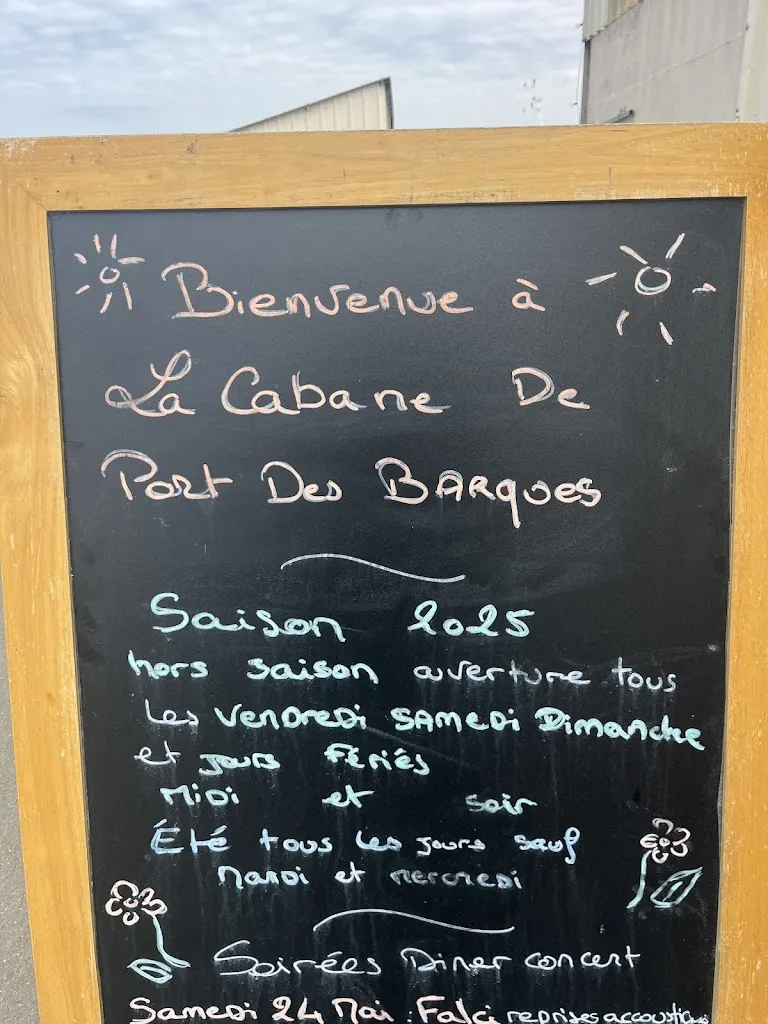 Bienvenue à
La Cabane De
Port Des BARques
Saison 2025
hors saison ouverture tous
les Vendredi SAMEDI Dimanche
et jours Fériés
Midi et soir
Été tous les jours sauf
Mardi et Mercredi
Soirées Diner concert
Samedi 24 Mai : Falci reprises accoustiques